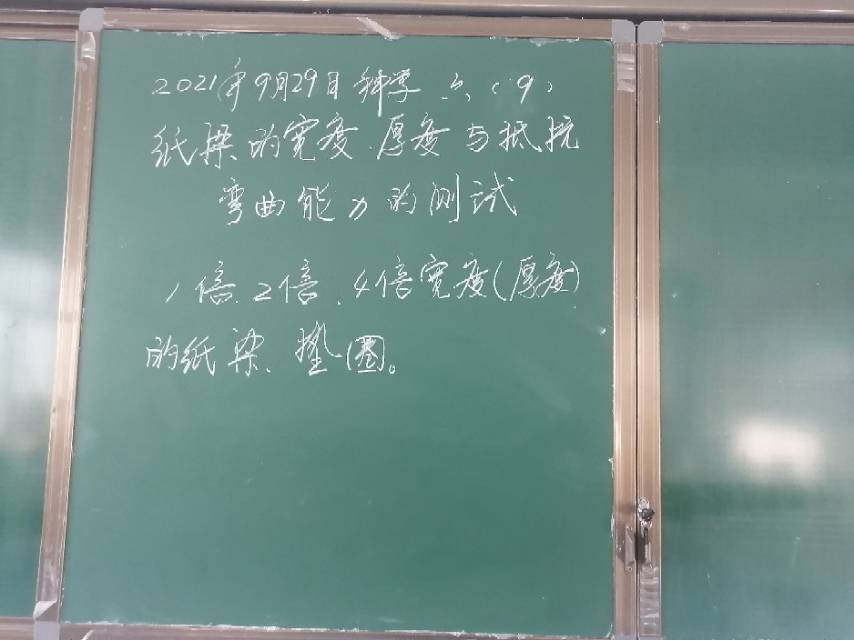 2021年9月29日 科学 六(9)
纸梁的宽度、厚度与抵抗
弯曲能力的测试
1倍、2倍、4倍宽度(厚度)
的纸梁、垫圈。